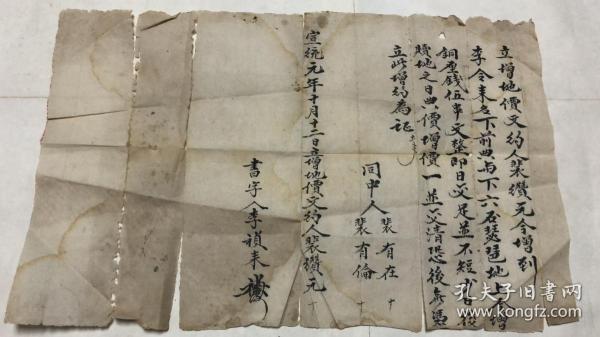 立增地價文約人裴鑽元今增到
李令來名下前典与下六石琵琶地上有增
銅查錢伍串文整即日交足並不短少日後
贖地之日典價增價一並交清恐後無憑
立此增約為証
同中人裴有在十
裴有倫十
宣統元年十月十二日立增地價文約人裴鑽元十
書字人李禎來
孔夫子旧书网
www.kongfz.com